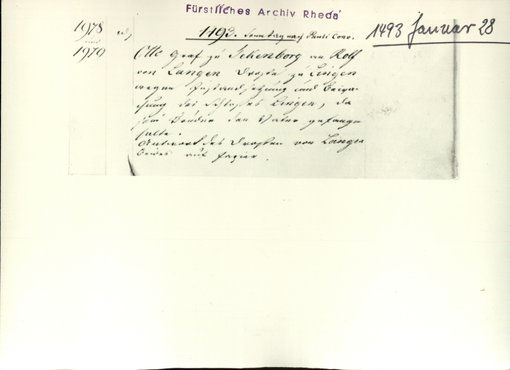 Fürstliches Archiv Rheda
1978 1493 Januar 28
1979 1493. Sonntag nach Pauli Conv.
Otto Graf zu Tekenborg an Rolf
von Langen Droste zu Lingen
wegen Instandsetzung und Bewa-
chung des Schlosses Lingen, da
sein Bruder den Vater gefangen
halte.
Antwort des Drosten von Langen
beides auf Papier.